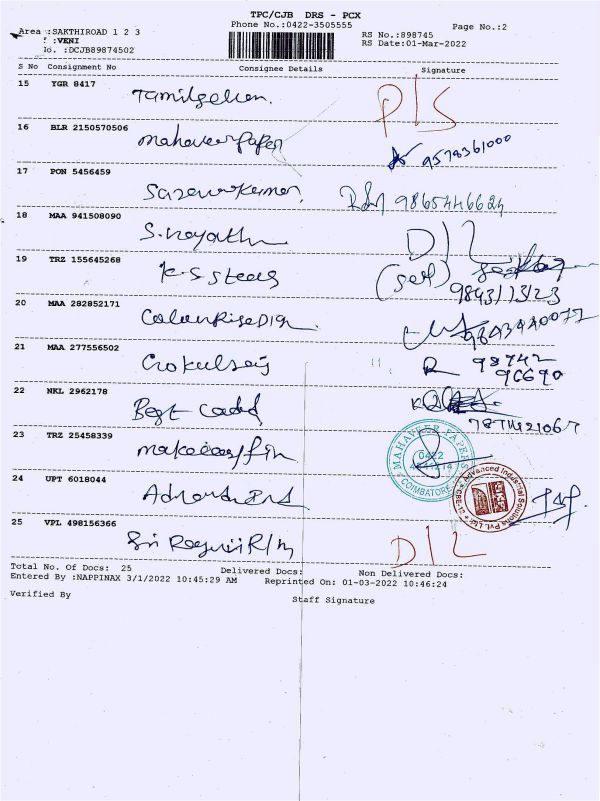 TPC/CJB DRS - PCX
Phone No.:0422-3505555
Page No.:2
Area :SAKTHIROAD 1 2 3
:VENI
No. :DCJB89874502
RS No.:898745
RS Date:01-Mar-2022
S No Consignment No Consignee Details Signature
15 YGR 8417 Tamilselvan. P/S
16 BLR 2150570506 mahaveer paper 9578361000
17 PON 5456459 Saravankumar 9865446624
18 MAA 941508090 D/L
19 TRZ 155645268 K-S steels (self) 9843113123
20 MAA 282852171 ColourRise DIGI. 9843440077
21 MAA 277556502 Gokulsai 98742 96690
22 NKL 2962178 Best 7871421067
23 TRZ 25458339
MAHAVEER PAPERS
0422
COIMBATORE
24 UPT 6018044
Advanced Industrial Solutions Pvt. Ltd.
25 VPL 498156366 Sri D/L
Total No. Of Docs: 25 Delivered Docs: Non Delivered Docs:
Entered By :NAPPINAX 3/1/2022 10:45:29 AM Reprinted On: 01-03-2022 10:46:24
Verified By Staff Signature